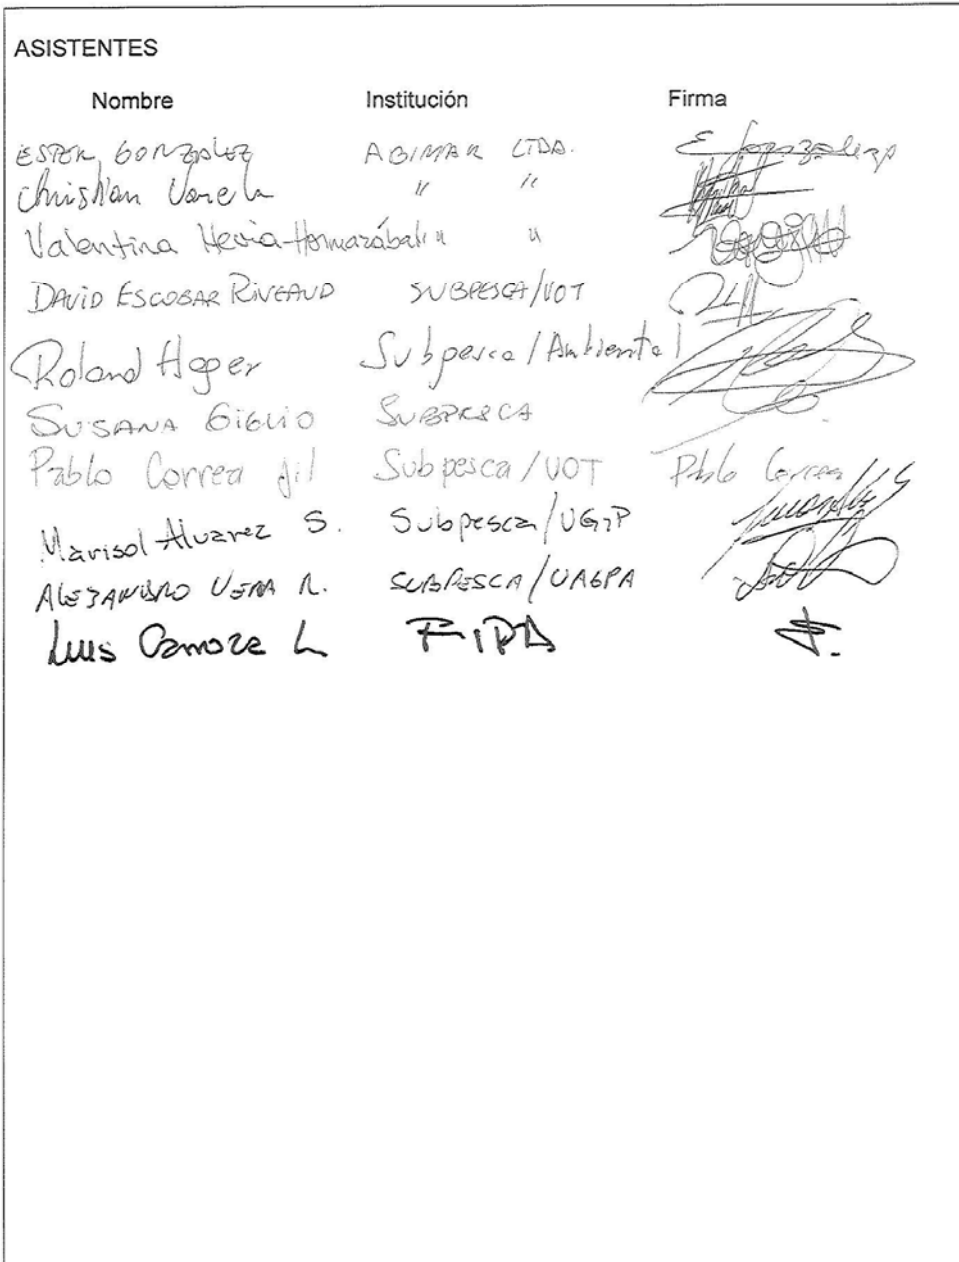 ASISTENTES
Nombre Institución Firma
ESTER GONZALEZ ABIMAR LTDA. E Gonzalez
Christian Varela " "
Valentina Hevia Hormazábal " "
DAVID ESCOBAR RIVEAUD SUBPESCA/UOT
Roland Hager Subpesca/Ambiental
SUSANA GIGLIO SUBPESCA
Pablo Correa Gil Subpesca/UOT Pablo Correa
Marisol Alvarez S. Subpesca/UGIP
ALEJANDRO VERA R. SUBPESCA/UAGPA
Luis Carroza L FIPA